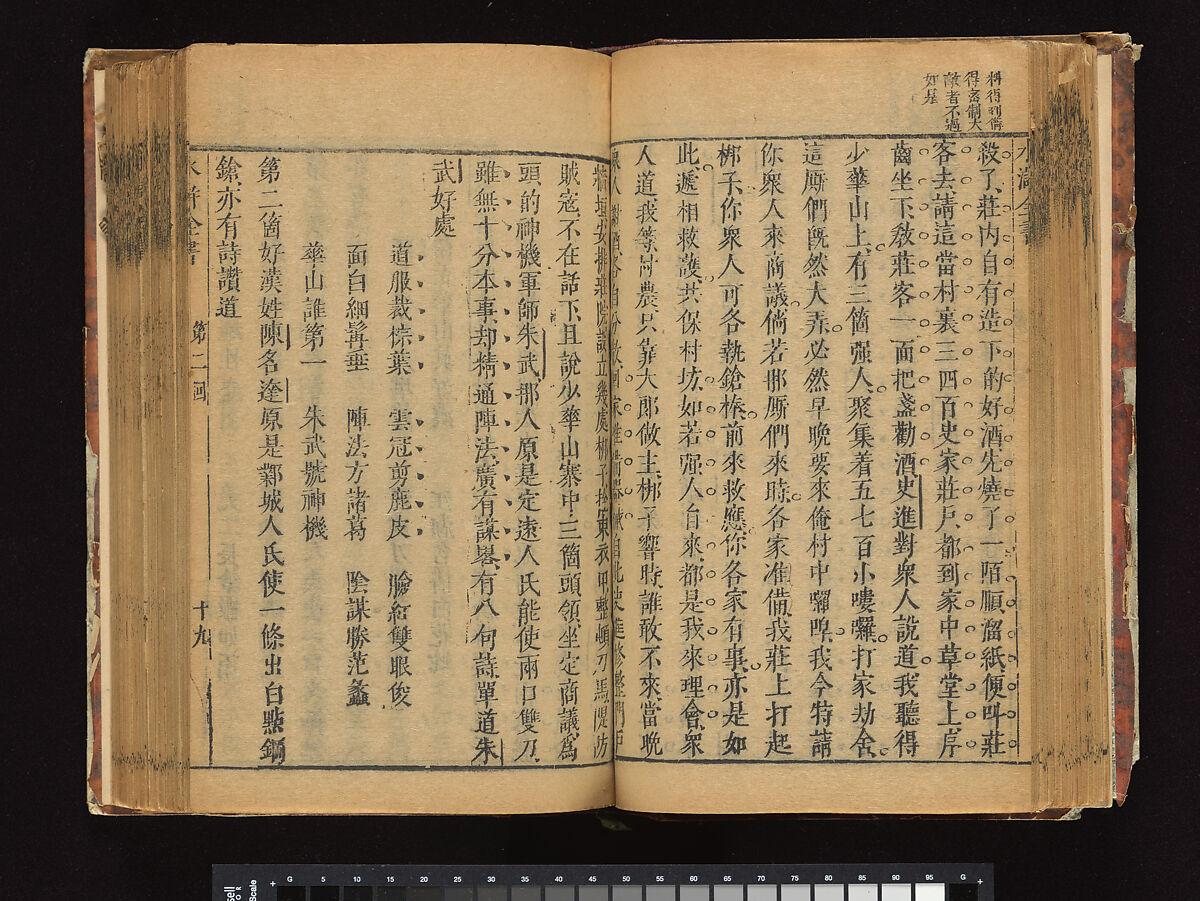 料得到備
得密制大
敵者不過
如是
水滸全書
殺了、莊內自有造下的好酒、先燒了一陌順溜紙、便叫莊
客去請這當村裏三四百史家莊戶、都到家中草堂上、序
齒坐下、教莊客一面把盞勸酒、史進對衆人說道、我聽得
少華山上、有三箇强人、聚集着五七百小嘍囉、打家劫舍、
這厮們旣然大弄、必然早晚要來俺村中囉唣、我今特請
你衆人來商議、倘若那厮們來時、各家准備、我莊上打起
梆子、你衆人可各執鎗棒、前來救應、你各家有事、亦是如
此、遞相救護、共保村坊、如若强人自來、都是我來理會、衆
人道、我等村農、只靠大郎做主、梆子響時、誰敢不來、當晚
衆人謝酒各自分散回家准備器械自此史進修整門戶
牆垣安排莊院設立幾處梆子拴束衣甲整頓刀馬隄防
賊寇、不在話下、且說少華山寨中三箇頭領、坐定商議、爲
頭的神機軍師朱武、那人原是定遠人氏、能使兩口雙刀、
雖無十分本事、却精通陣法、廣有謀畧、有八句詩、單道朱
武好處
道服裁棕葉 雲冠剪鹿皮 臉紅雙眼俊
面白細髯垂 陣法方諸葛 陰謀勝范蠡
華山誰第一 朱武號神機
第二箇好漢姓陳名達、原是鄴城人氏、使一條出白點鋼
鎗、亦有詩讚道
水滸全書 第二回 十九
Scale
G 5 10 15 20 25 30 35 40 45 50 55 60 65 70 75 80 85 90 95 G